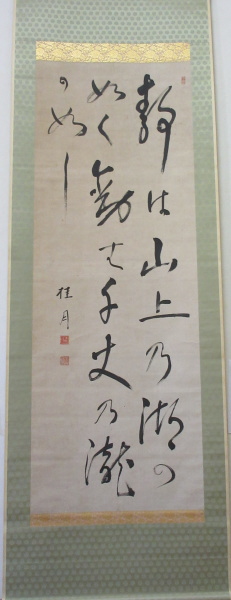 静は山上乃湖の
如く動は千丈乃瀧
の如し
桂月